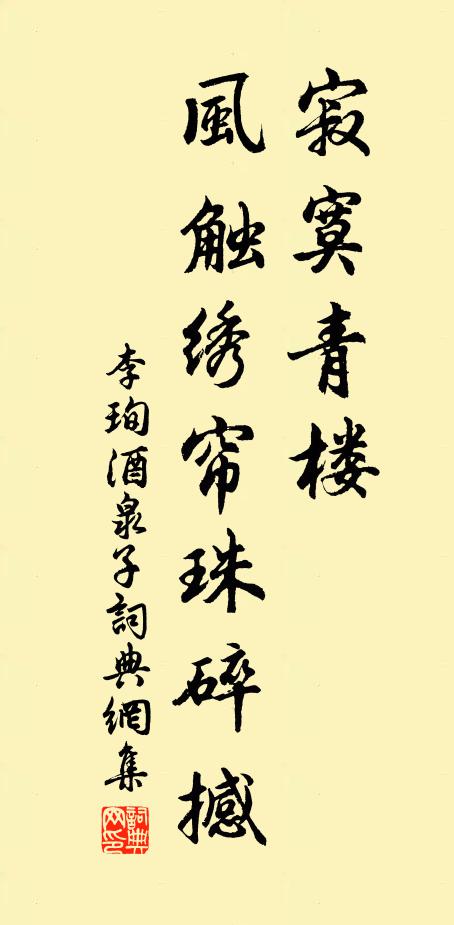 寂寞青楼
風触绣帘珠碎撼
李珣酒泉子詞典網集
詞典网印